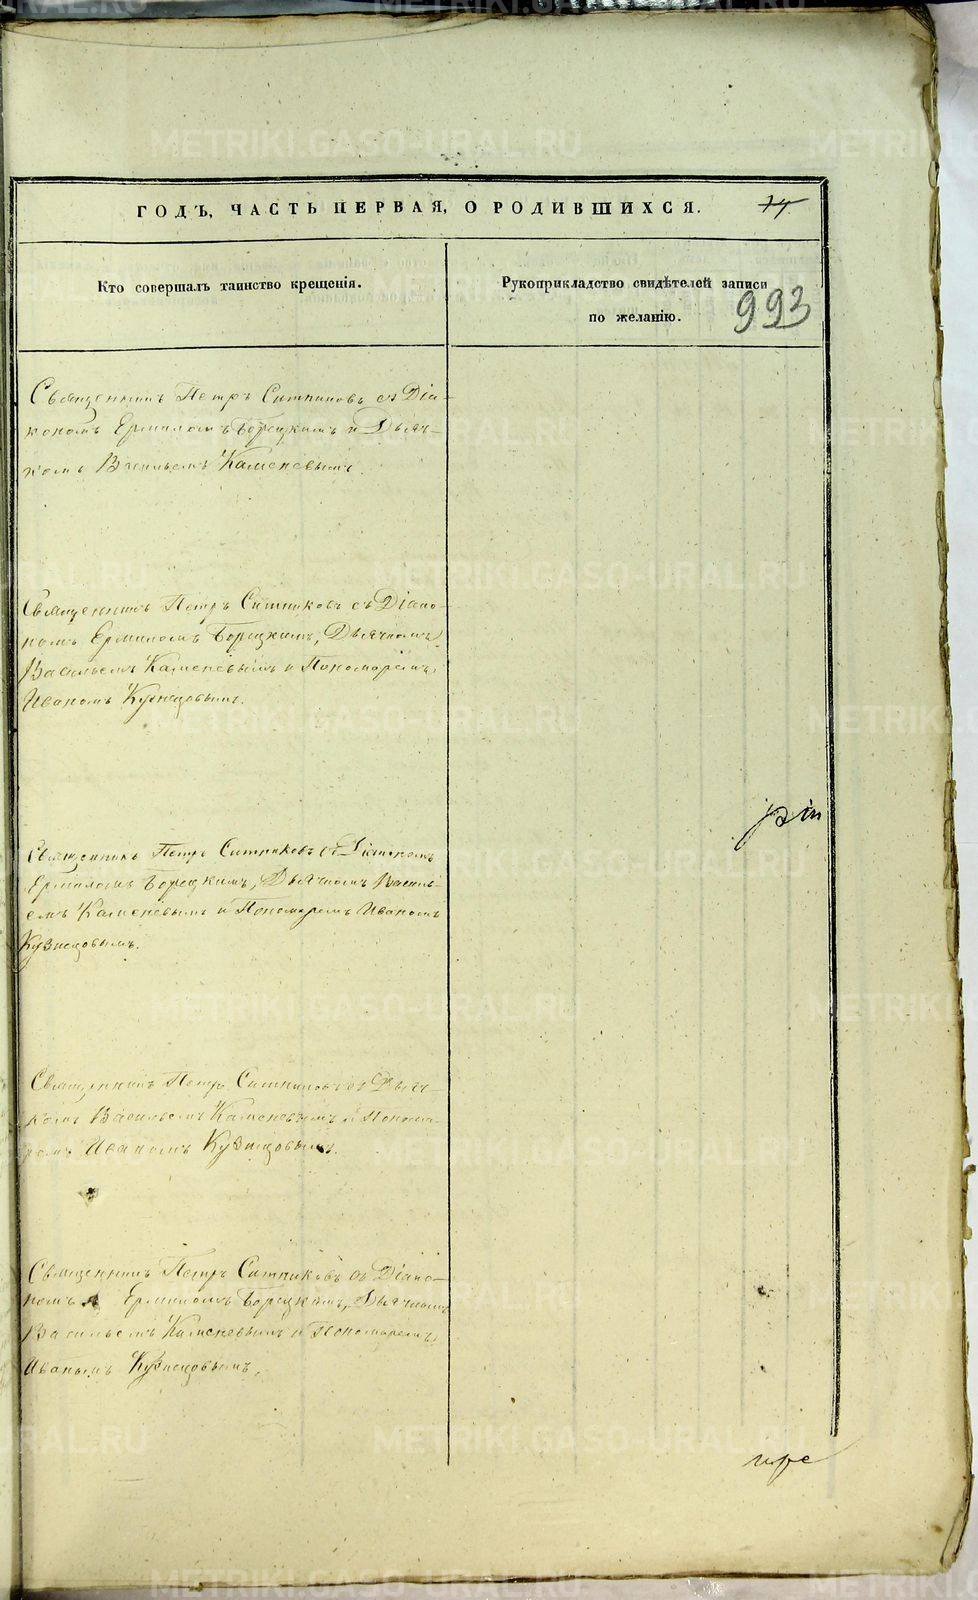 ГОДЪ, ЧАСТЬ ПЕРВАЯ, О РОДИВШИХСЯ. 74
Кто совершалъ таинство крещенія.
Рукоприкладство свидѣтелей записи
по желанію.
993
Священникъ Петръ Ситниковъ съ Діа-
кономъ Ермиломъ Борецкимъ и Дьяч-
комъ Васильемъ Каменевымъ.
Священникъ Петръ Ситниковъ съ Діако-
номъ Ермиломъ Борецкимъ, Дьячкомъ
Васильемъ Каменевымъ и Пономаремъ
Иваномъ Кузнецовымъ.
Священникъ Петръ Ситниковъ съ Діакономъ
Ермиломъ Борецкимъ, Дьячкомъ Василь-
емъ Каменевымъ и Пономаремъ Иваномъ
Кузнецовымъ.
Священникъ Петръ Ситниковъ съ Дьяч-
комъ Васильемъ Каменевымъ и Понома-
ремъ Иваномъ Кузнецовымъ.
Священникъ Петръ Ситниковъ съ Діако-
номъ Ермиломъ Борецкимъ, Дьячкомъ
Васильемъ Каменевымъ и Пономаремъ
Иваномъ Кузнецовымъ.
METRIKI.GASO-URAL.RU